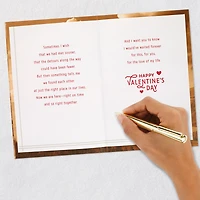 Sometimes I wish
that we had met sooner,
that the detours along the way
could have been fewer.
But then something tells me
we found each other
at just the right place in our lives.
Now we are here - right on time
and so right together.
And I want you to know
I would've waited forever
for this, for you,
for the love of my life.
HAPPY
VALENTINE'S
DAY